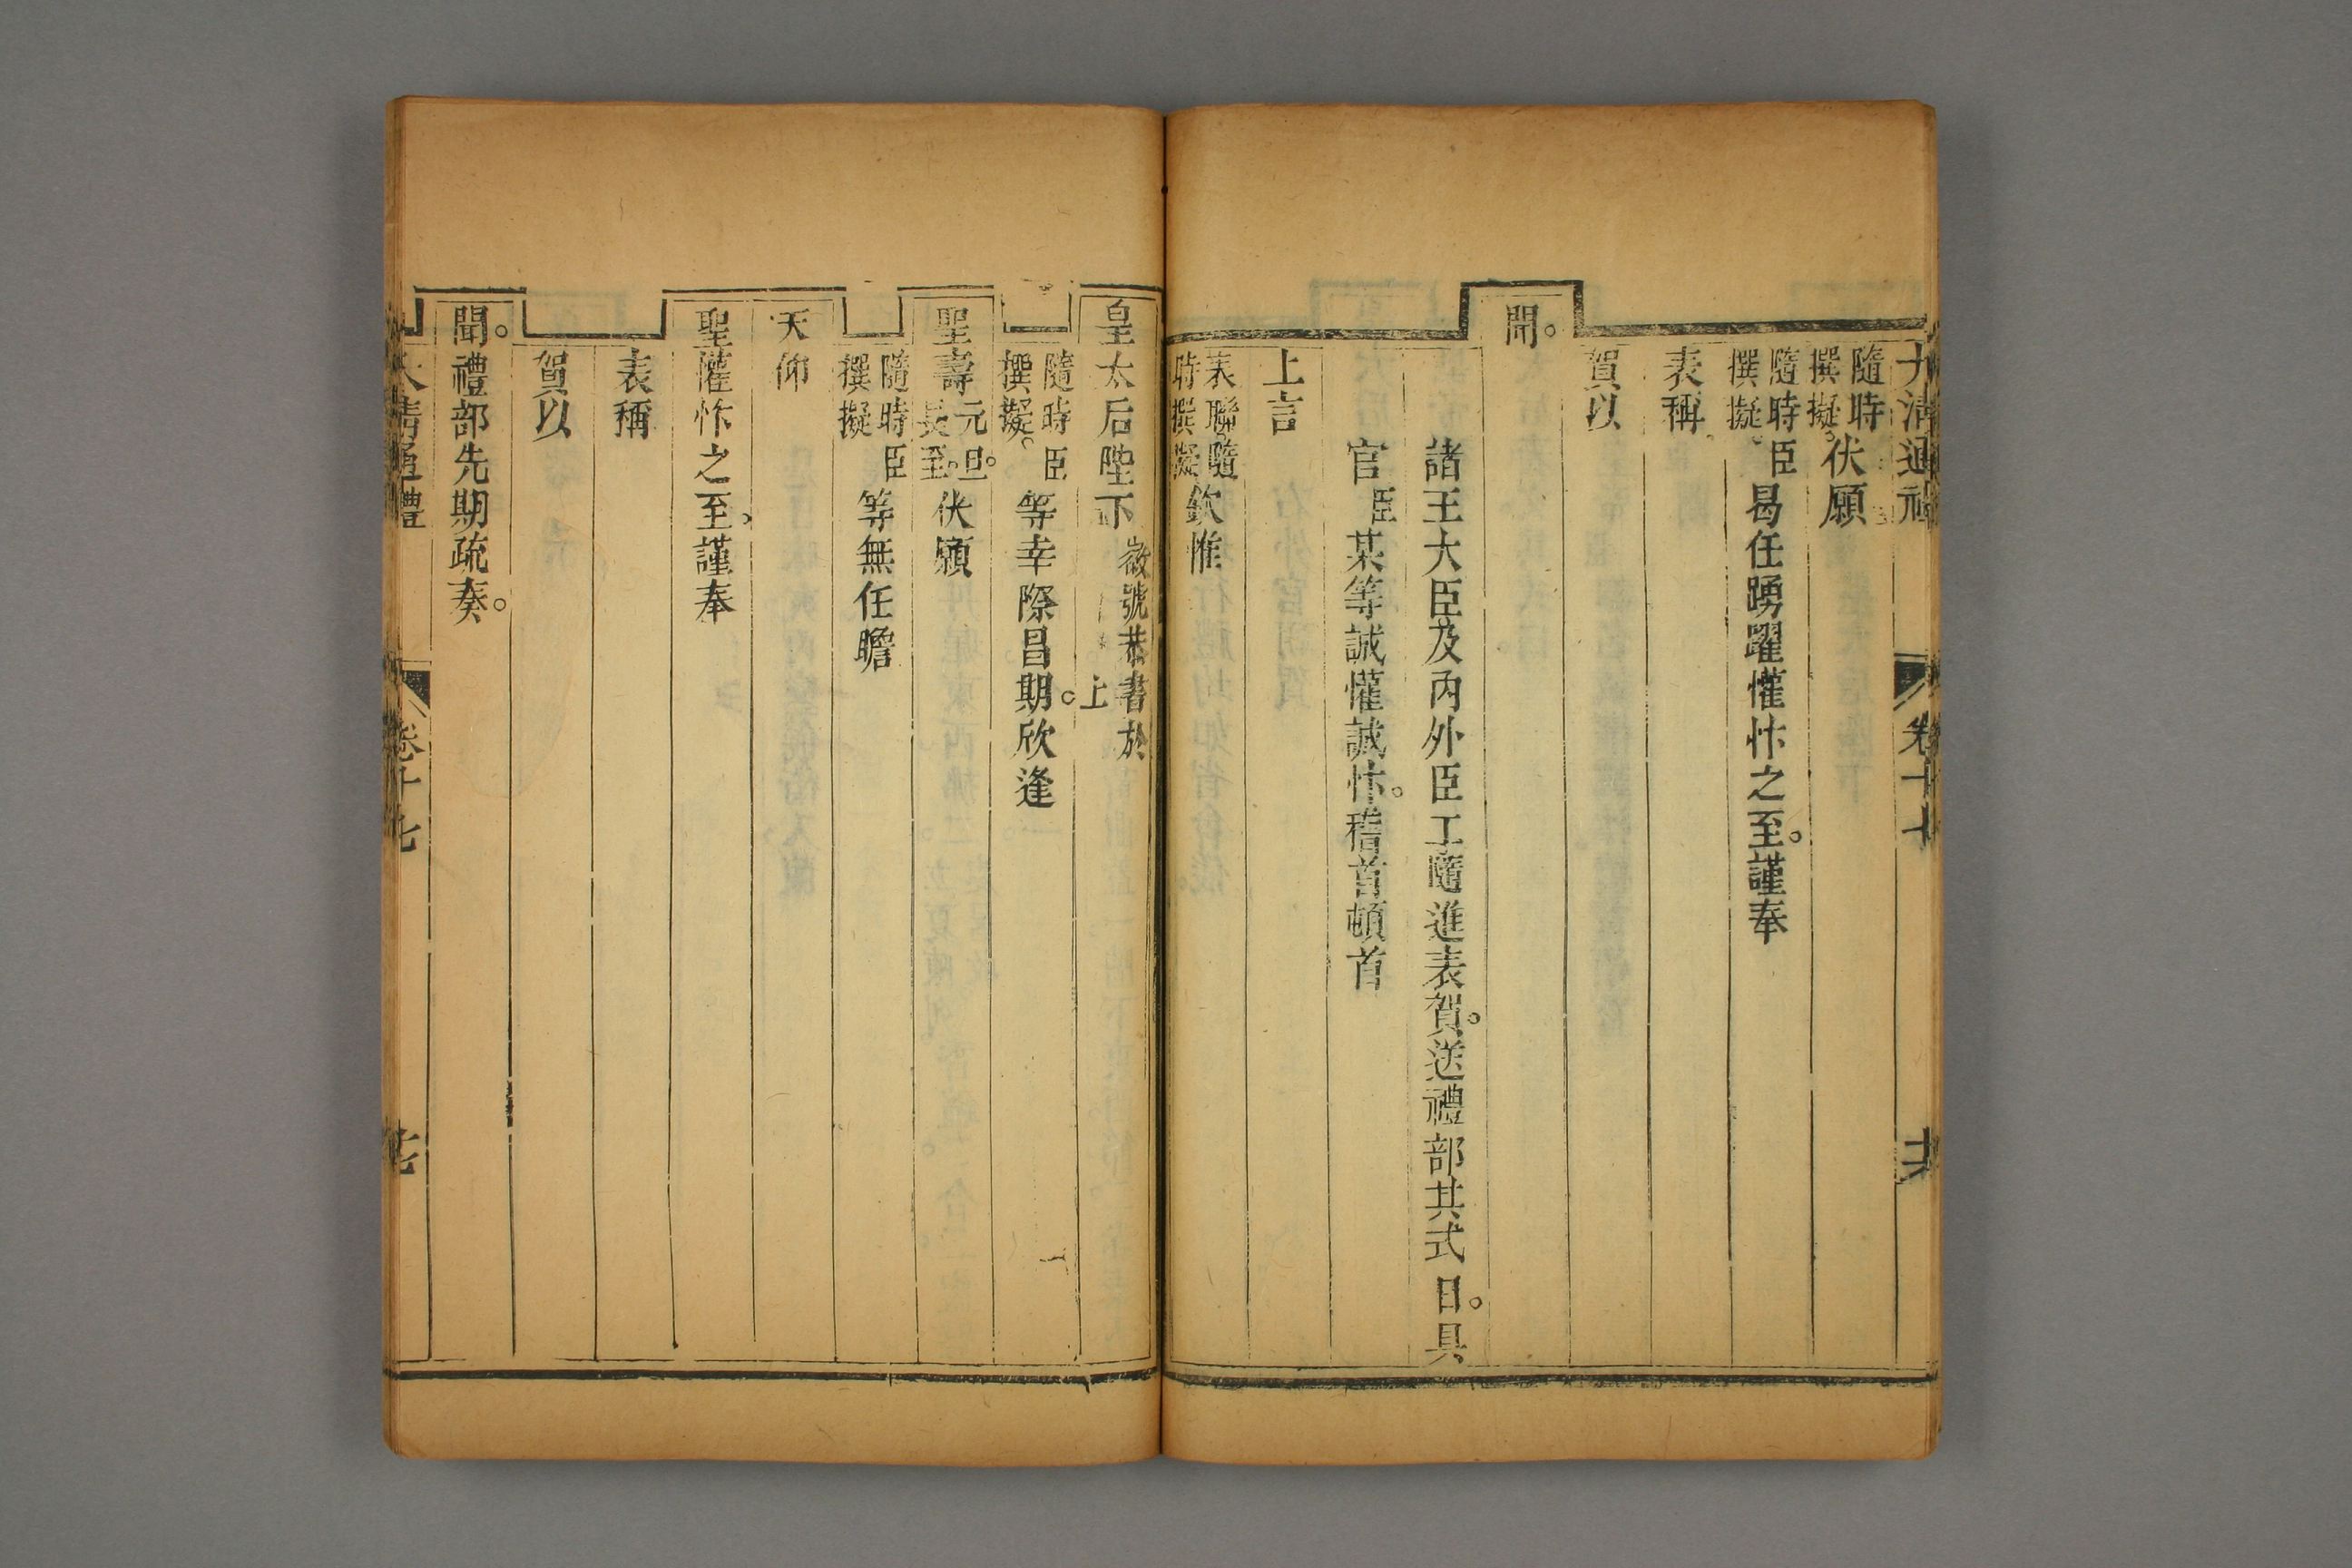 大清通禮 卷十七 共
隨時撰擬。伏願
隨時撰擬。臣曷任踴躍懽忭之至。謹奉
表稱
賀以
聞。
諸王大臣及內外臣工隨進表賀。送禮部其式曰。具
官臣某等誠懽誠忭。稽首頓首
上言
表聯隨時撰擬欽惟
皇太后陛下徽號恭書於上
隨時撰擬。臣等幸際昌期。欣逢
聖壽元旦。長至。伏願
隨時撰擬臣等無任瞻
天仰
聖懽忭之至、謹奉
表稱
賀以
聞。禮部先期疏奏。
大清通禮 卷十七